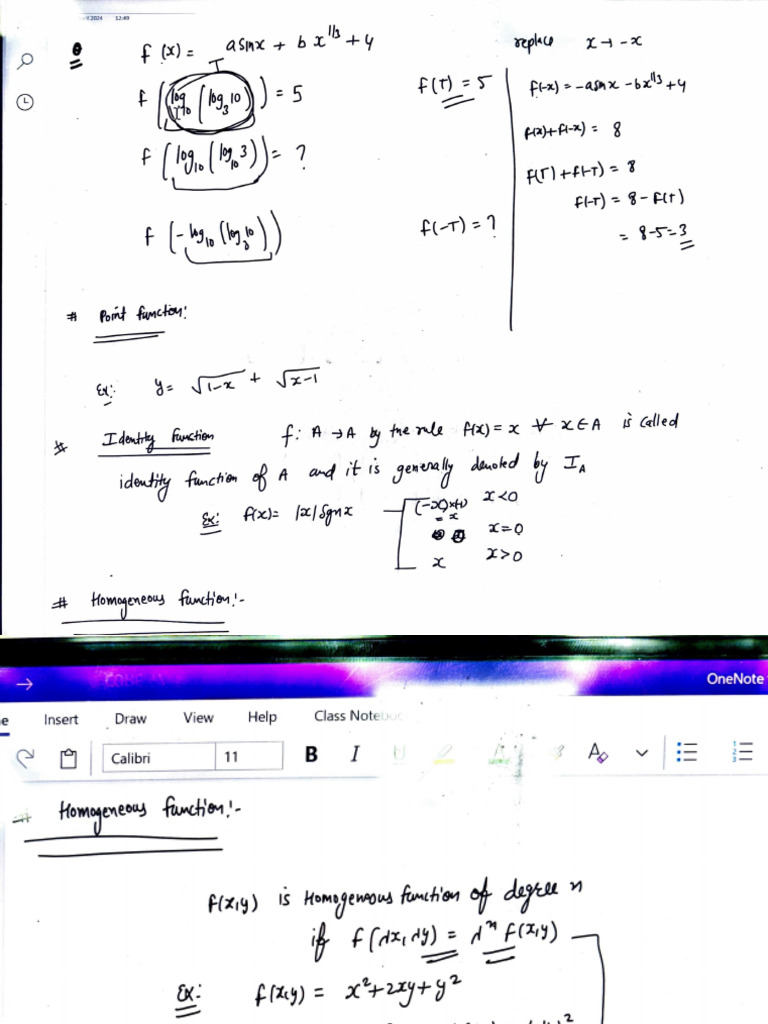 2024 12:49
f(x) = a sinx + b x^{1/3} + 4
replace x → -x
T
f(log_{10}(log_3 10)) = 5
f(T) = 5
f(-x) = -a sinx - bx^{1/3} + 4
f(x) + f(-x) = 8
f(log_{10}(log_{10} 3)) = ?
f(T) + f(-T) = 8
f(-T) = 8 - f(T)
f(-log_{10}(log_3 10))
f(-T) = ?
= 8-5 = 3
# Point function:
Ex: y = √(1-x) + √(x-1)
Identity function f: A → A by the rule f(x) = x ∀ x ∈ A is called
identity function of A and it is generally denoted by I_A
Ex: f(x) = |x| sgn x
(-x)x(-1) x<0
= x
x=0
x x>0
# Homogeneous function:-
OneNote
Insert Draw View Help Class Notebook
Calibri 11 B I U A
# Homogeneous function:-
f(x,y) is Homogeneous function of degree n
if f(λx, λy) = λ^n f(x,y)
Ex: f(x,y) = x²+2xy+y²